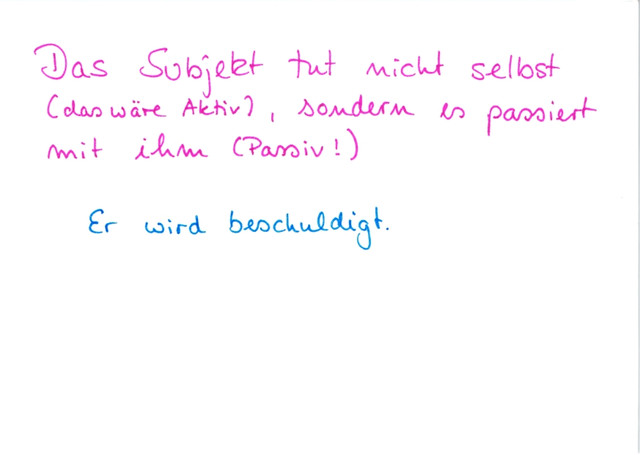 Das Subjekt tut nicht selbst
(das wäre Aktiv), sondern es passiert
mit ihm (Passiv!)
Er wird beschuldigt.